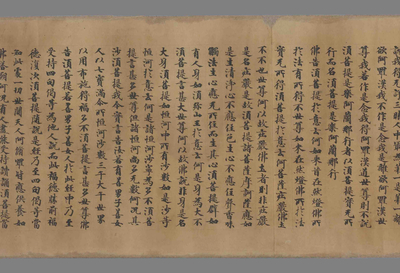 說我得無諍三昧人中最為第一是第一離
欲阿羅漢我不作是念我是離欲阿羅漢世
尊我若作是念我得阿羅漢道世尊則不說
須菩提是樂阿蘭那行者以須菩提實無所
行而名須菩提是樂阿蘭那行
佛告須菩提於意云何如來昔在然燈佛所
於法有所得不世尊如來在然燈佛所於法
實無所得須菩提於意云何菩薩莊嚴佛土
不不也世尊何以故莊嚴佛土者則非莊嚴
是名莊嚴是故須菩提諸菩薩摩訶薩應如
是生清淨心不應住色生心不應住聲香味
觸法生心應無所住而生其心須菩提譬如
有人身如須彌山王於意云何是身為大不
須菩提言甚大世尊何以故佛說非身是名
大身須菩提如恒河中所有沙數如是沙等
恒河於意云何是諸恒河沙寧為多不須菩
提言甚多世尊但諸恒河尚多無數何況其
沙須菩提我今實言告汝若有善男子善女
人以七寶滿爾所恒河沙數三千大千世界
以用布施得福多不須菩提言甚多世尊佛
告須菩提若善男子善女人於此經中乃至
受持四句偈等為他人說而此福德勝前福
德復次須菩提隨說是經乃至四句偈等當
知此處一切世間天人阿修羅皆應供養如
佛塔廟何況有人盡能受持讀誦須菩提當